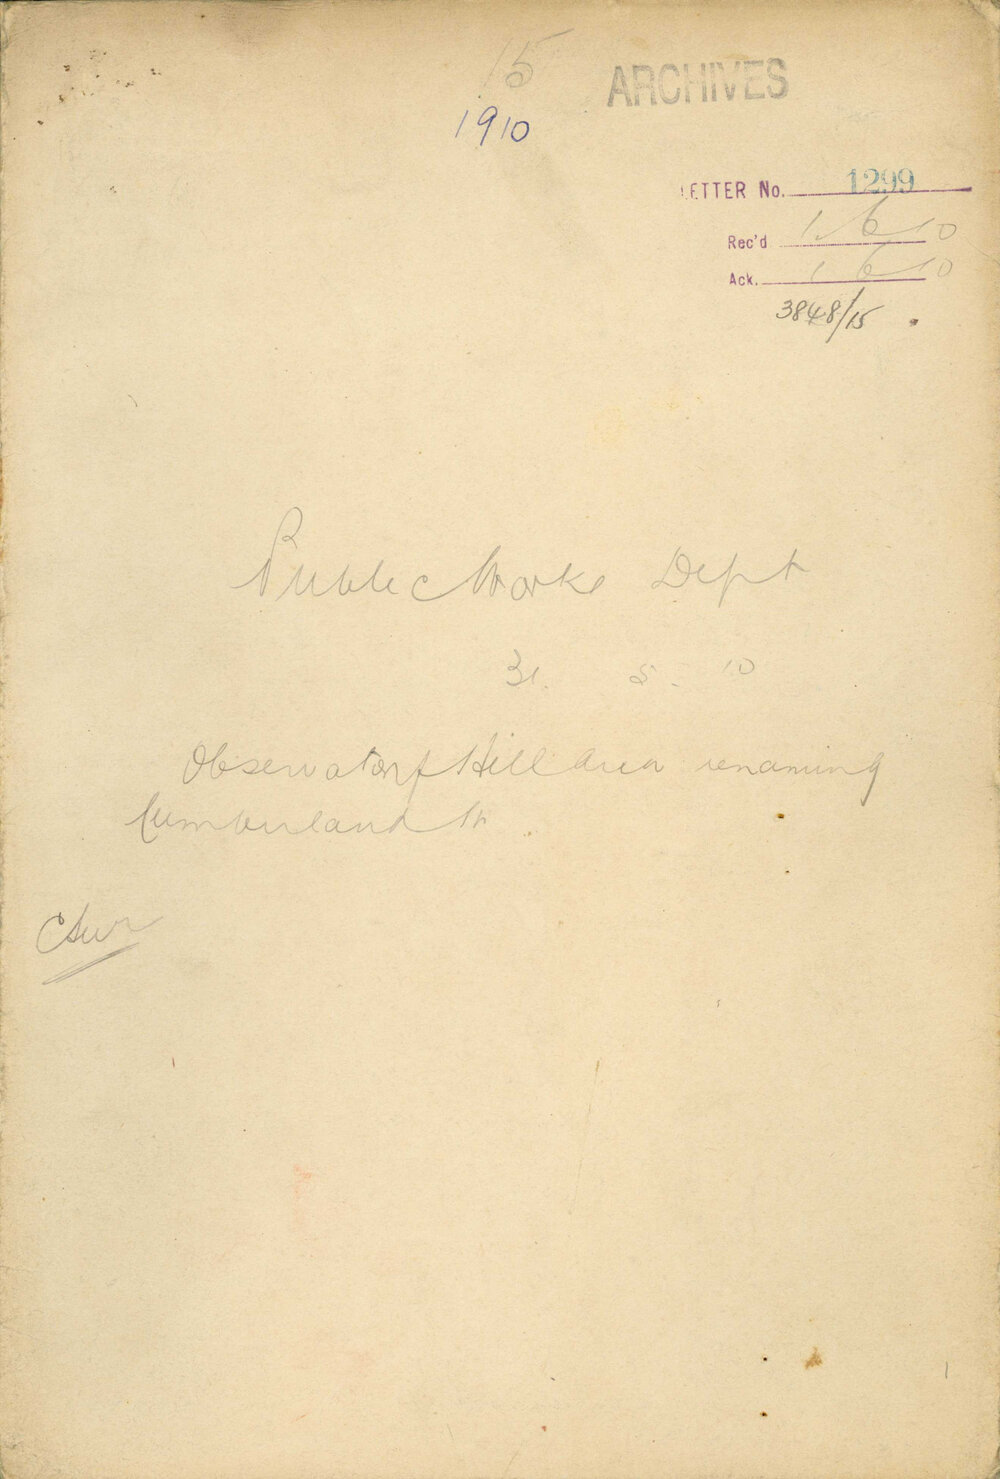 15
ARCHIVES
1910
LETTER No. 1299
Rec'd 1. 6. 10
Ack. 1 6 10
3848/15
Public Works Dept
31. 5. 10
Observatory Hill Area renaming
Cumberland St